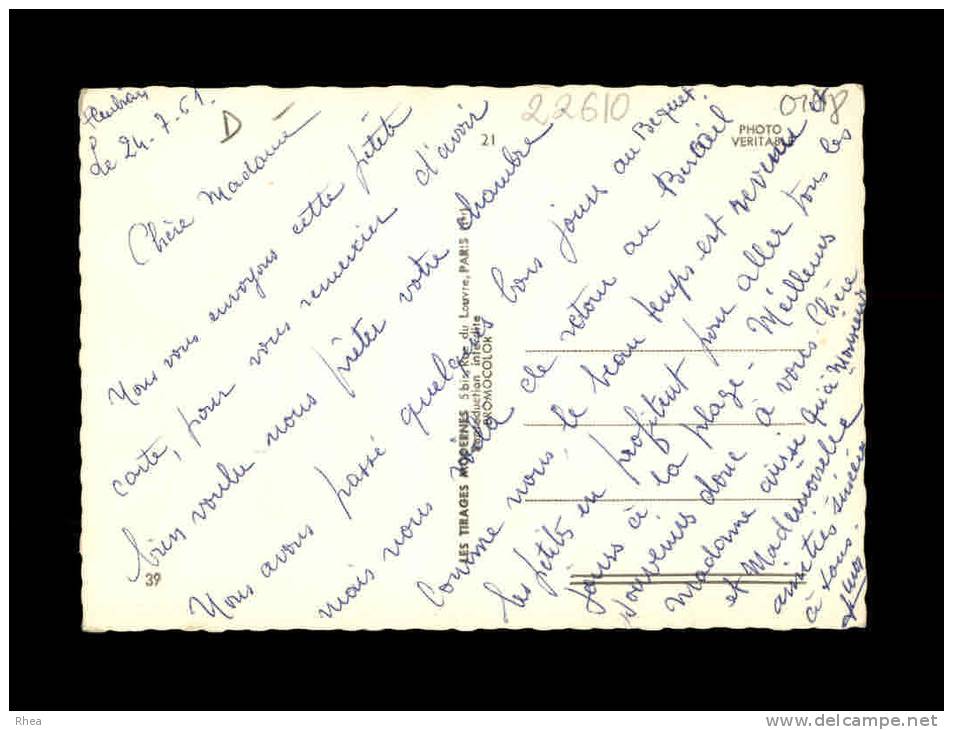 Le 24-7-61.
D -
22610
21
PHOTO
VERITABLE
39
LES TIRAGES MODERNES 5 bis, Rue du Louvre, PARIS
Reproduction interdite
BROMOCOLOR
Chère Madame
Nous vous envoyons cette petite
carte, pour vous remercier d'avoir
bien voulu nous prêter votre chambre
Nous avons passé quelques bons jours au Becquet.
mais nous voilà de retour au Bercail
Comme nous, le beau temps est revenu et
les petits en profitent pour aller tous les
jours à la plage - Meilleurs
souvenirs donc à vous Chère
madame ainsi qu'à Monsieur
et Mademoiselle
amitiés sincères
à tous.
Rhea
www.delcampe.net